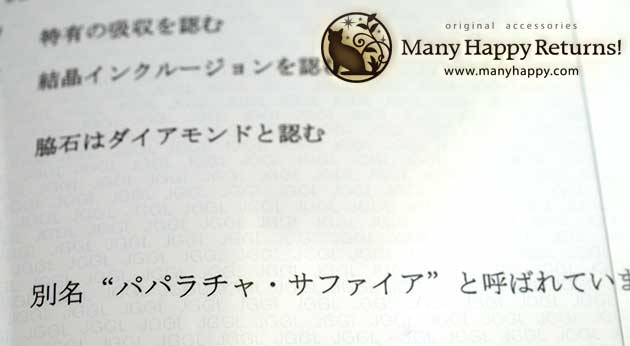 original accessories
Many Happy Returns!
www.manyhappy.com
特有の吸収を認む
結晶インクルージョンを認
脇石はダイアモンドと認む
JGGL JGGL JGGL JGGL
別名 “パパラチャ・サファイア” と呼ばれていま